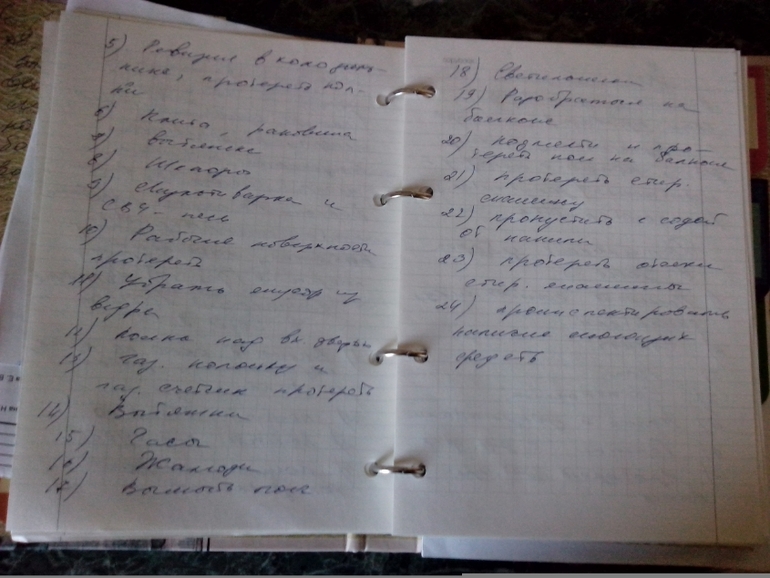 5) Ревизия в холодиль-
нике, протереть пол-
ки
6) Плита, раковина
7) вытяжка
8) Шторы
9) Мультиварка и
СВЧ-печь
10) Рабочие поверхности
протереть
11) Убрать из
ведра
12) полка над вх. дверью
13) Газ. колонку и
газ. счетчик протереть
14) Вытяжки
15) Часы
16) Жалюзи
17) Вымыть пол
18) Светильники
19) Разобраться на
балконе
20) подмести и про-
тереть пол на балконе
21) протереть стир.
машину
22) пропустить с содой
от накипи
23) протереть отсеки
стир. машины
24) проинспектировать
наличие моющих
средств